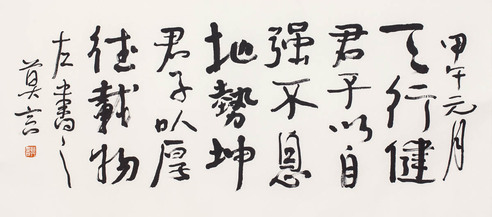 甲午元月
天行健
君子以自
强不息
地勢坤
君子以厚
德載物
左書之
莫言